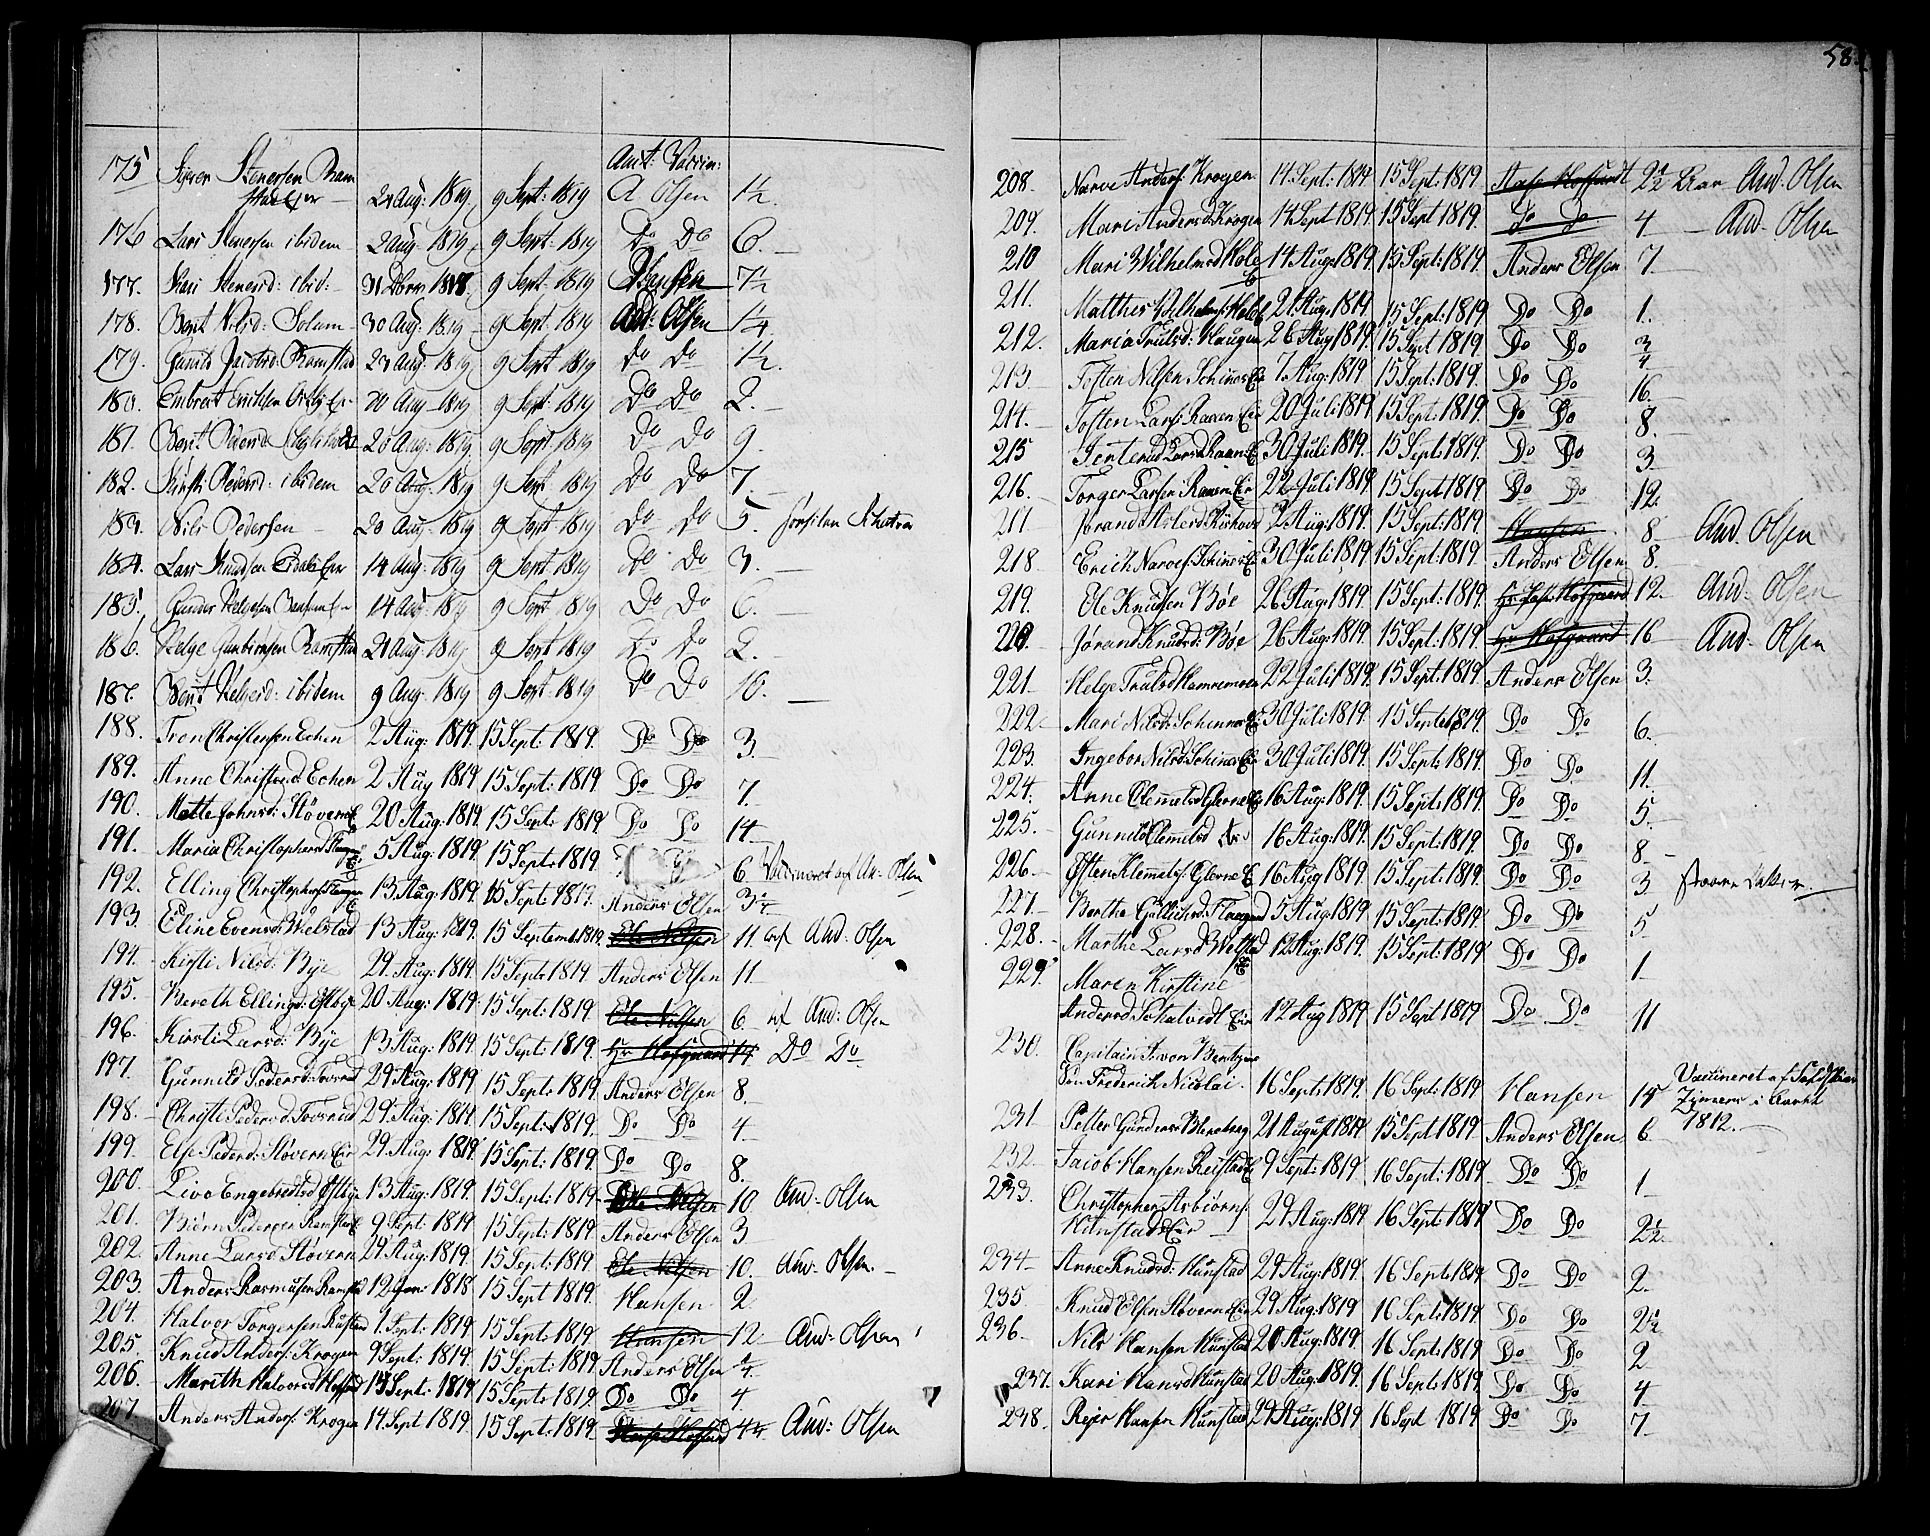 58.
Amt: Vaccin:
175 Siver Stenersen Ram
stad Eir 24 Aug: 1819 9 Sept: 1819 A Olsen 1½.
176 Lars Stenersen ibidem 2 Aug: 1819 9 Sept: 1819 Do Do 6.
177. Kari Stenersd: ibid: 31 Dbrr 1818 9 Sept. 1819 Hansen 7½
178. Berit Nilsd: Solum 30 Aug: 1819 9 Sept: 1819 And: Olsen 1¼.
179. Gunild Jacobsd: Ramstad 24 Aug: 1819 9 Sept 1819 Do Do 1½.
180. Embret Erichsen 20 Aug 1819 9 Sept: 1819 Do Do 2.
181. Berit Pedersd 20 Aug: 1819 9 Sept 1819 Do Do 9.
182. Kirsti Pedersd: ibidem 20 Aug: 1819 9 Sept 1819 Do Do 7.
183. Nils Pedersen 20 Aug: 1819 9 Sept 1819 Do Do 5.
184. Lars Knudsen 14 Aug: 1819 9 Sept 1819 Do Do 3.
185. Gunder Helgesen 14 Aug 1819 9 Sept 1819 Do Do 6.
186. Helge Gunbiørnsen Ramstad 24 Aug: 1819 9 Sept 1819 Do Do 2.
187. Berit Helgesd: ibidem 9 Aug. 1819 9 Sept 1819 Do Do 10.
188. Tron Christensen Echen 2 Aug: 1819. 15 Sept: 1819. Do Do 3.
189. Anne Christensd Echen 2 Aug 1819 15 Sept: 1819. Do Do 7.
190. Mette Johnsd: Støveren E 20 Aug: 1819. 15 Sept: 1819 Do Do 14
191. Maria Christophersd 5 Aug: 1819. 15 Sept: 1819. 6 af An: Olsen
192. Elling Christophers: 13 Aug: 1819. 15 Sept: 1819. Anders Olsen 3½
193. Eline Evensd: Wielstad 13 Aug: 1819. 15 Septemb. 1819. Ole Nilsen 11. af And: Olsen
194. Kirsti Nilsd: Bye 29. Aug: 1819. 15 Sept: 1819 Anders Olsen 11
195. Bereth Ellingsd: Østbye 20 Aug: 1819. 15 Sept: 1819. Ole Nilsen 6. af And: Olsen
196. Kirsti Larsd: Bye 13 Aug: 1819. 15 Sept: 1819. Hr Hofgaard 14. Do Do
197. Gunnild Pedersd: 29 Aug: 1819 15 Sept: 1819 Anders Olsen 8.
198. Christi Pedersd 29. Aug: 1819 15 Sept: 1819. Do Do 4
199. Else Pedersd: Støvern Eir 29. Aug: 1819. 15 Sept: 1819. Do Do 8.
200. Live Engebretsd Østbye 13 Aug: 1819. 15 Sept: 1819. Ole Nilsen 10 And: Olsen
201. Biørn Pedersen Ramstad E 9 Sept: 1819 15 Sept: 1819 Anders Olsen 3
202. Anne Larsd Støvern 29 Aug: 1819. 15 Sept: 1819. Ole Nilsen 10. And: Olsen.
203. Anders Rasmusen Ramstad 12 Jan: 1818 15 Sept 1819. Hansen 2.
204. Halvor Torgersen Rustad 1. Sept: 1819 15 Sept: 1819. Hansen 12 And: Olsen
205. Knud Anders: Krogen 9 Sept: 1819. 15 Sept: 1819. Anders Olsen ¼
206. Marith Halvorsd 14 Sept: 1819 15 Sept: 1819. Do Do 4
207 Anders Anders: Krogen 14. Sept 1819. 15 Sept: 1819. 4½ And: Olsen
208. Narve Anders: Krogen 14 Sept: 1819 15 Sept: 1819 2½ Aar And: Olsen
209. Mari Andersd: Krogen 14 Sept 1819. 15 Sept 1819. Do Do 4 And: Olsen
210 Mari Wilhelmsd Hole E 14 Aug: 1819. 15 Sept: 1819. Anders Olsen 7.
211. Matthis Wilhelms: Hole E 21 Aug: 1819 15 Sept: 1819. Do Do 1.
212. Maria Trulsd: Haugen 26 Aug 1819. 15 Sept 1819. Do Do ¾
213. Tosten Nilsen Eir 7. Aug: 1819 15 Sept: 1819. Do Do 16.
214. Tosten Lars: Raaen Eir 20 Juli 1819 15 Sept: 1819. Do Do 8.
215 Larsd Raaen E 30 Juli 1819. 15 Sept: 1819. Do Do 3
216. Torger Larsen Raaen Eir 22 Juli 1819 15 Sept: 1819. Do Do 12.
217 Jørand 2 Aug: 1819. 15 Sept: 1819. Hansen 8 And Olsen
218. Erich Narves: Eir 30 Juli 1819. 15 Sept: 1819. Anders Olsen 8.
219. Ole Knudsen Bøe 26 Aug: 1819. 15 Sept: 1819. Hofgaard 12. And: Olsen
220. Jørand Knudsd: Bøe 26 Aug: 1819. 15 Sept: 1819. Hr Hofgaard 16 And: Olsen
221. Helge Trulsd 22 Juli 1819. 15 Sept: 1819. Anders Olsen 3.
222. Mari Nilsd: 30 Juli 1819. 15 Sept: 1819. Do Do 6.
223. Ingebor Nilsd: Eir 30 Juli 1819. 15 Sept: 1819. Do Do 11.
224. Anne Clemmetsd E 16 Aug: 1819. 15 Sept: 1819. Do Do 5.
225. Gunnild Clemmetsd 16 Aug: 1819. 15 Sept: 1819. Do Do 8
226. Østen Klemmets: E 16 Aug 1819. 15 Sept: 1819. Do Do 3
227. Berthe Gullichsd: 5 Aug: 1819. 15 Sept: 1819. Do Do 5
228. Marthe Larsd Wielstad E 12 Aug: 1819. 15 Sept: 1819. Do Do 1
229. Maren Kirstine
Andersd Eir 12 Aug 1819 15 Sept 1819 Do Do 11
230. Capitain
Søn Frederich Nicolai. 16 Sept: 1819. 16 Sept: 1819. Hansen 15 Vaccineret af
1812.
231 Petter Gunders: 21 August 1819 15 Sept 1819. Anders Olsen 6
232. Jacob Hansen E 9 Sept: 1819 16 Sept: 1819 Do Do 1
233. Christopher Asbiørns:
Hunstad Eir 29 Aug: 1819 16 Sept: 1819 Do Do 2½.
234 Anne Knudsd: Hunstad 29 Aug: 1819. 16 Sept: 1819 Do Do 2.
235. Knud Olsen Støvern Eir 29 Aug: 1819 16 Sept: 1819 Do Do 2½
236. Nils Hansen Hunstad 20 Aug: 1819. 16 Sept: 1819 Do Do 2
237. Kari Hansd Hunstad 20 Aug: 1819 16 Sept: 1819 Do Do 4
238. Rejer Hansen Hunstad 29 Aug: 1819 16 Sept 1819 Do Do 7